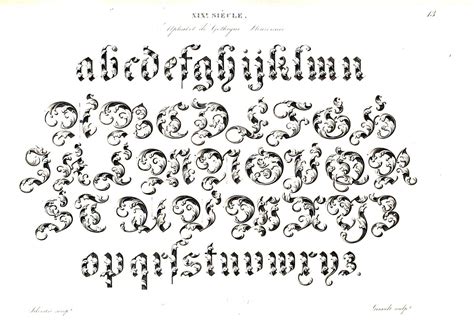 XIX.e SIÈCLE. 13
Alphabet de Gothique
abcdefghijklmn
ABCDEFGH
KLMNOPQR
STUVWXYZ
opqrsstuvwxyz.
Silvestre scrip.t Girault sculp.t